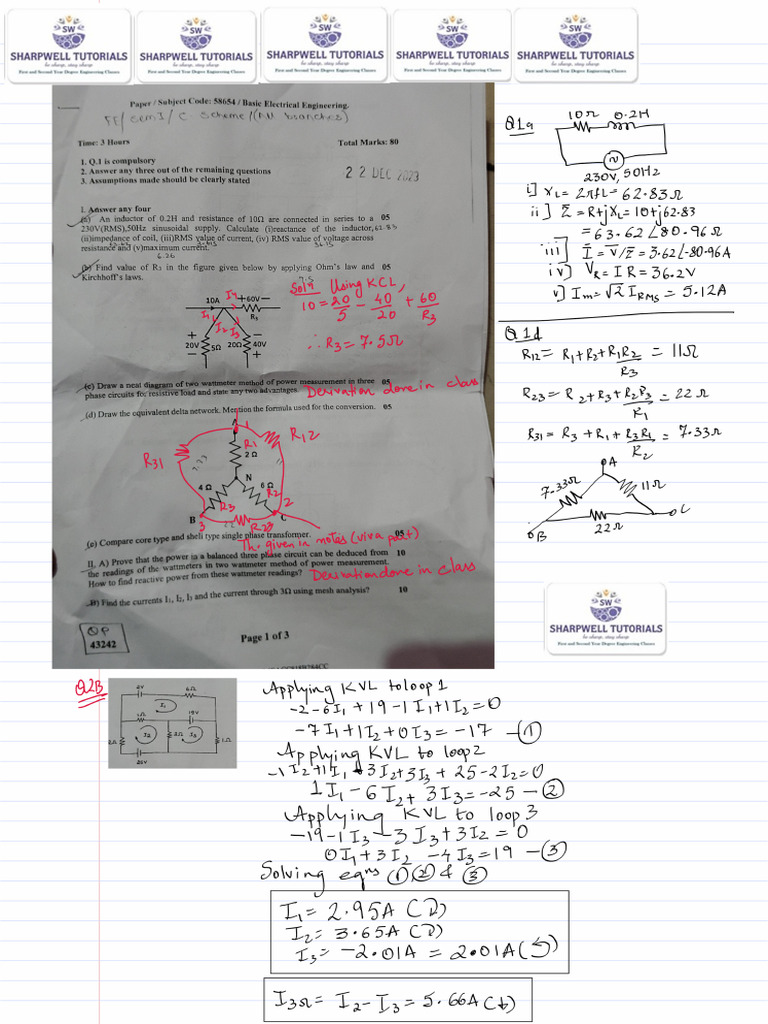 SW SW SW SW SW
SHARPWELL TUTORIALS SHARPWELL TUTORIALS SHARPWELL TUTORIALS SHARPWELL TUTORIALS SHARPWELL TUTORIALS
be sharp, stay sharp be sharp, stay sharp be sharp, stay sharp be sharp, stay sharp be sharp, stay sharp
First and Second Year Degree Engineering Classes First and Second Year Degree Engineering Classes First and Second Year Degree Engineering Classes First and Second Year Degree Engineering Classes First and Second Year Degree Engineering Classes
Paper / Subject Code: 58654 / Basic Electrical Engineering.
FE/ Sem I / C Scheme/(All branches)
Time: 3 Hours Total Marks: 80
1. Q.1 is compulsory
2. Answer any three out of the remaining questions
3. Assumptions made should be clearly stated
22 DEC 2023
I. Answer any four
(a) An inductor of 0.2H and resistance of 10Ω are connected in series to a 05
230V(RMS),50Hz sinusoidal supply. Calculate (i)reactance of the inductor, 62.83
(ii)impedance of coil, (iii)RMS value of current, (iv) RMS value of voltage across
resistance and (v)maximum current.
(b) Find value of R₃ in the figure given below by applying Ohm's law and 05
Kirchhoff's laws.
7.5
Solⁿ Using KCL,
10 = 20/5 - 40/20 + 60/R₃
∴ R₃ = 7.5Ω
10A + 60V −
I₁ I₂ I₃
R₃
+ − −
20V 5Ω 20Ω 40V
− + +
(c) Draw a neat diagram of two wattmeter method of power measurement in three 05
phase circuits for resistive load and state any two advantages. Derivation done in class
(d) Draw the equivalent delta network. Mention the formula used for the conversion. 05
A 1
R31 R1 R12
7.33 2 Ω
N
4 Ω 6 Ω
R3 R2
B C
3 22 R23 2
(e) Compare core type and shell type single phase transformer. 05
Th. given in notes (viva part)
II. A) Prove that the power in a balanced three phase circuit can be deduced from 10
the readings of the wattmeters in two wattmeter method of power measurement.
How to find reactive power from these wattmeter readings? Derivation done in class
B) Find the currents I₁, I₂, I₃ and the current through 3Ω using mesh analysis? 10
QP
43242
Page 1 of 3
Q1a
10Ω 0.2H
230V, 50Hz
i] XL = 2πfL = 62.83Ω
ii] Z̅ = R+jXL = 10+j62.83
= 63.62∠80.96Ω
iii] I̅ = V̅/Z̅ = 3.62∠-80.96A
iv] VR = I R = 36.2V
v] Im = √2 IRMS = 5.12A
Q1d
R12 = R1+R2+R1R2/R3 = 11Ω
R23 = R2+R3+R2R3/R1 = 22Ω
R31 = R3+R1+R3R1/R2 = 7.33Ω
A
7.33Ω 11Ω
B C
22Ω
SW
SHARPWELL TUTORIALS
be sharp, stay sharp
First and Second Year Degree Engineering Classes
Q2B
2V 6Ω
I₁
1Ω 19V
2Ω I₂ 3Ω I₃ 1Ω
25V
Applying KVL to loop 1
-2-6I₁+19-1I₁+1I₂=0
-7I₁+1I₂+0I₃=-17 -①
Applying KVL to loop2
-1I₂+1I₁-3I₂+3I₃+25-2I₂=0
1I₁-6I₂+3I₃=-25-②
Applying KVL to loop 3
-19-1I₃-3I₃+3I₂=0
0I₁+3I₂-4I₃=19-③
Solving eqⁿˢ ①,② & ③
I₁=2.95A(↻)
I₂=3.65A(↻)
I₃=-2.01A=2.01A(↺)
I3Ω=I₂-I₃=5.66A(↓)